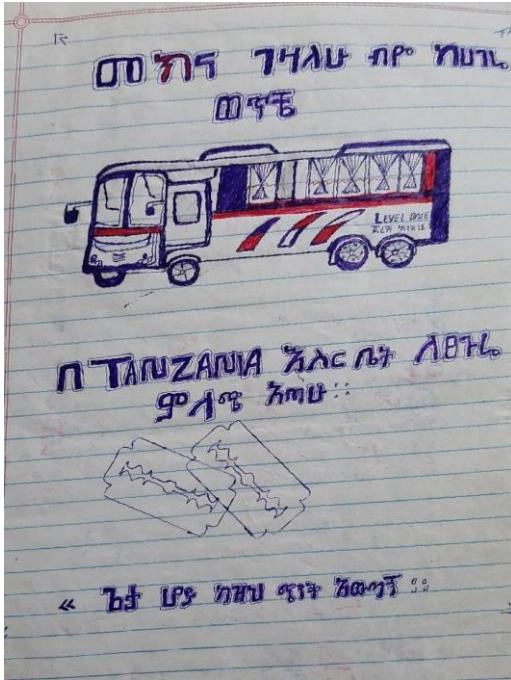 መኪና ገዛለሁ ብዬ ከሀገሬ
ወጥቼ
LEVEL ONE
በ TANZANIA እስር ቤት ለፀጉሬ
ምላጭ አጣሁ ።
« ጌታ ሆይ ከዚህ ጭንቅ አውጣኝ ።